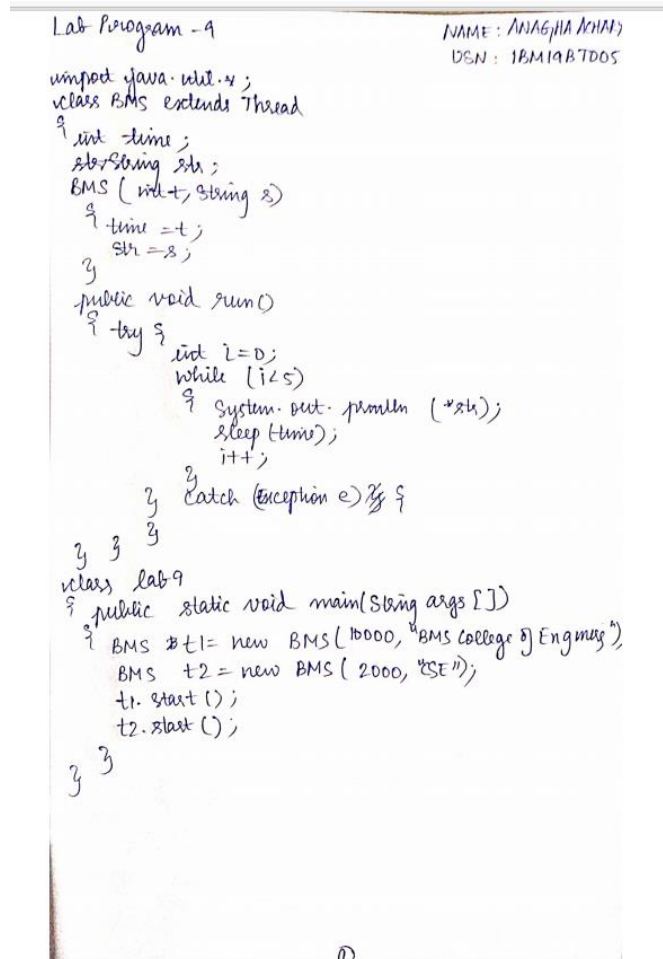 Lab Program - 9
NAME : ANAGHA ACHARY
USN : 1BM19BT005
import java.util.*;
class BMS extends Thread
{ int time ;
String str ;
BMS ( int t, String s)
{ time = t ;
str = s ;
}
public void run()
{ try {
int i=0;
while (i<5)
{ System.out.println ("+str);
sleep (time);
i++ ;
}
} catch (Exception e) {
} } }
class lab9
{ public static void main(String args [])
{ BMS t1= new BMS( 10000, "BMS College of Engineering"),
BMS t2 = new BMS( 2000, "CSE");
t1. start () ;
t2. start () ;
} }